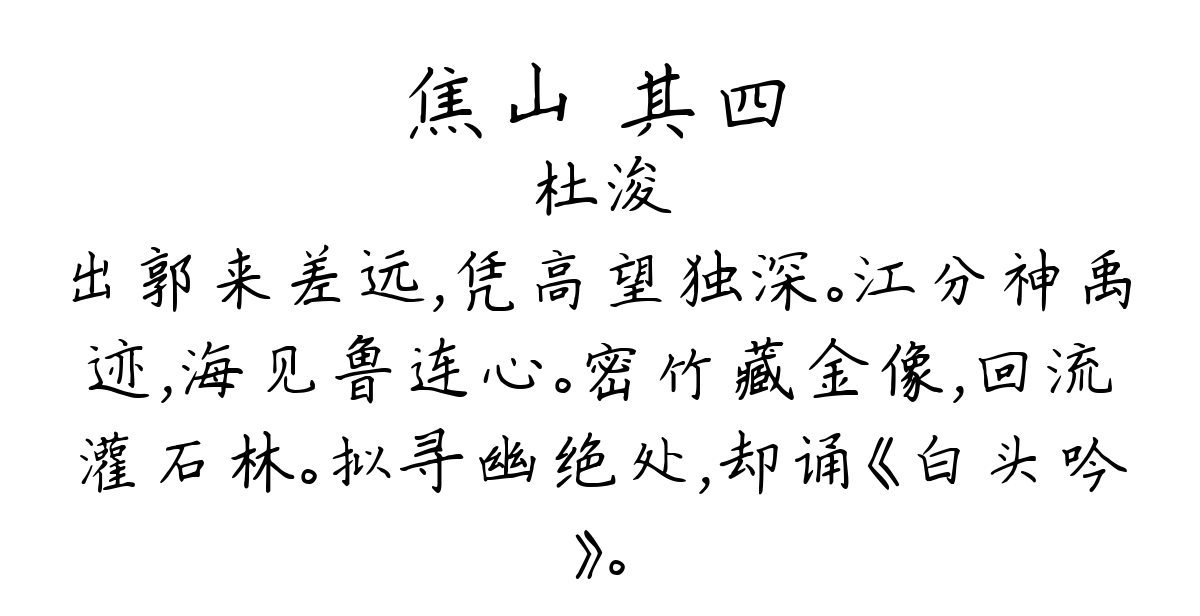 焦山 其四
杜浚
出郭来差远,凭高望独深。江分神禹
迹,海见鲁连心。密竹藏金像,回流
灌石林。拟寻幽绝处,却诵《白头吟
》。